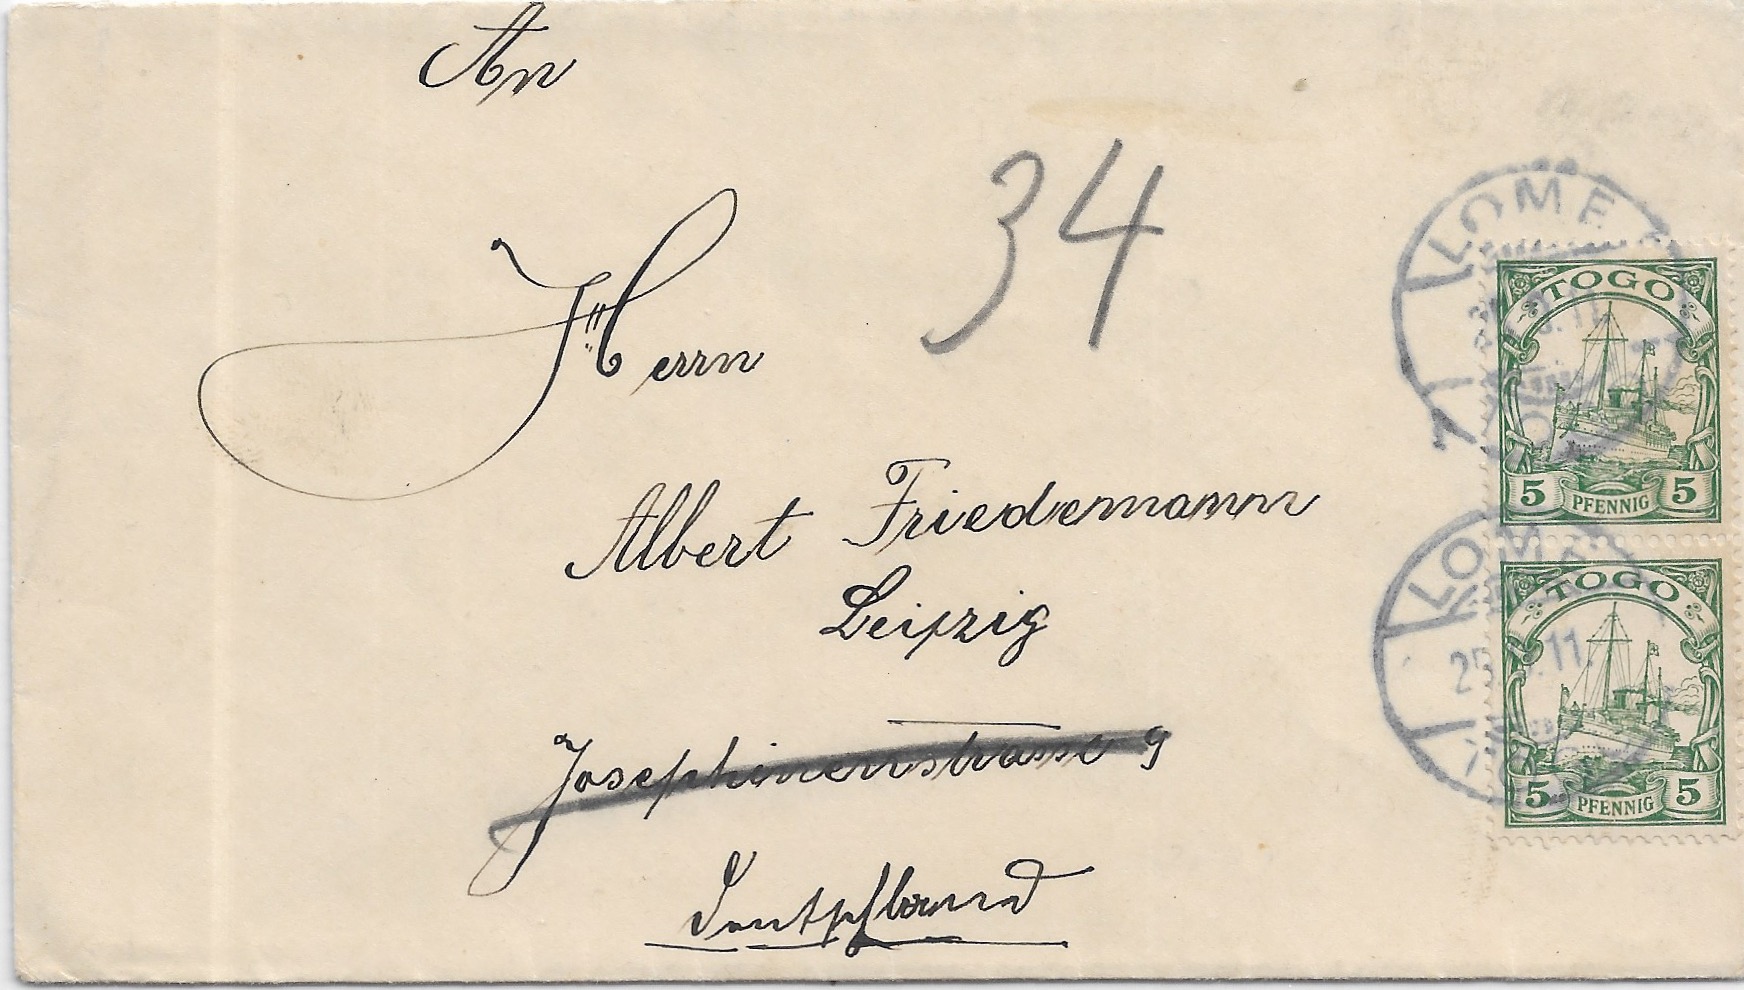 An
34
Herrn
Albert Friedemann
Leipzig
Josephinenstrasse 9
Deutschland
LOME
11.
TOGO
5 PFENNIG 5
LOME
25 11.
TOGO
5 PFENNIG 5